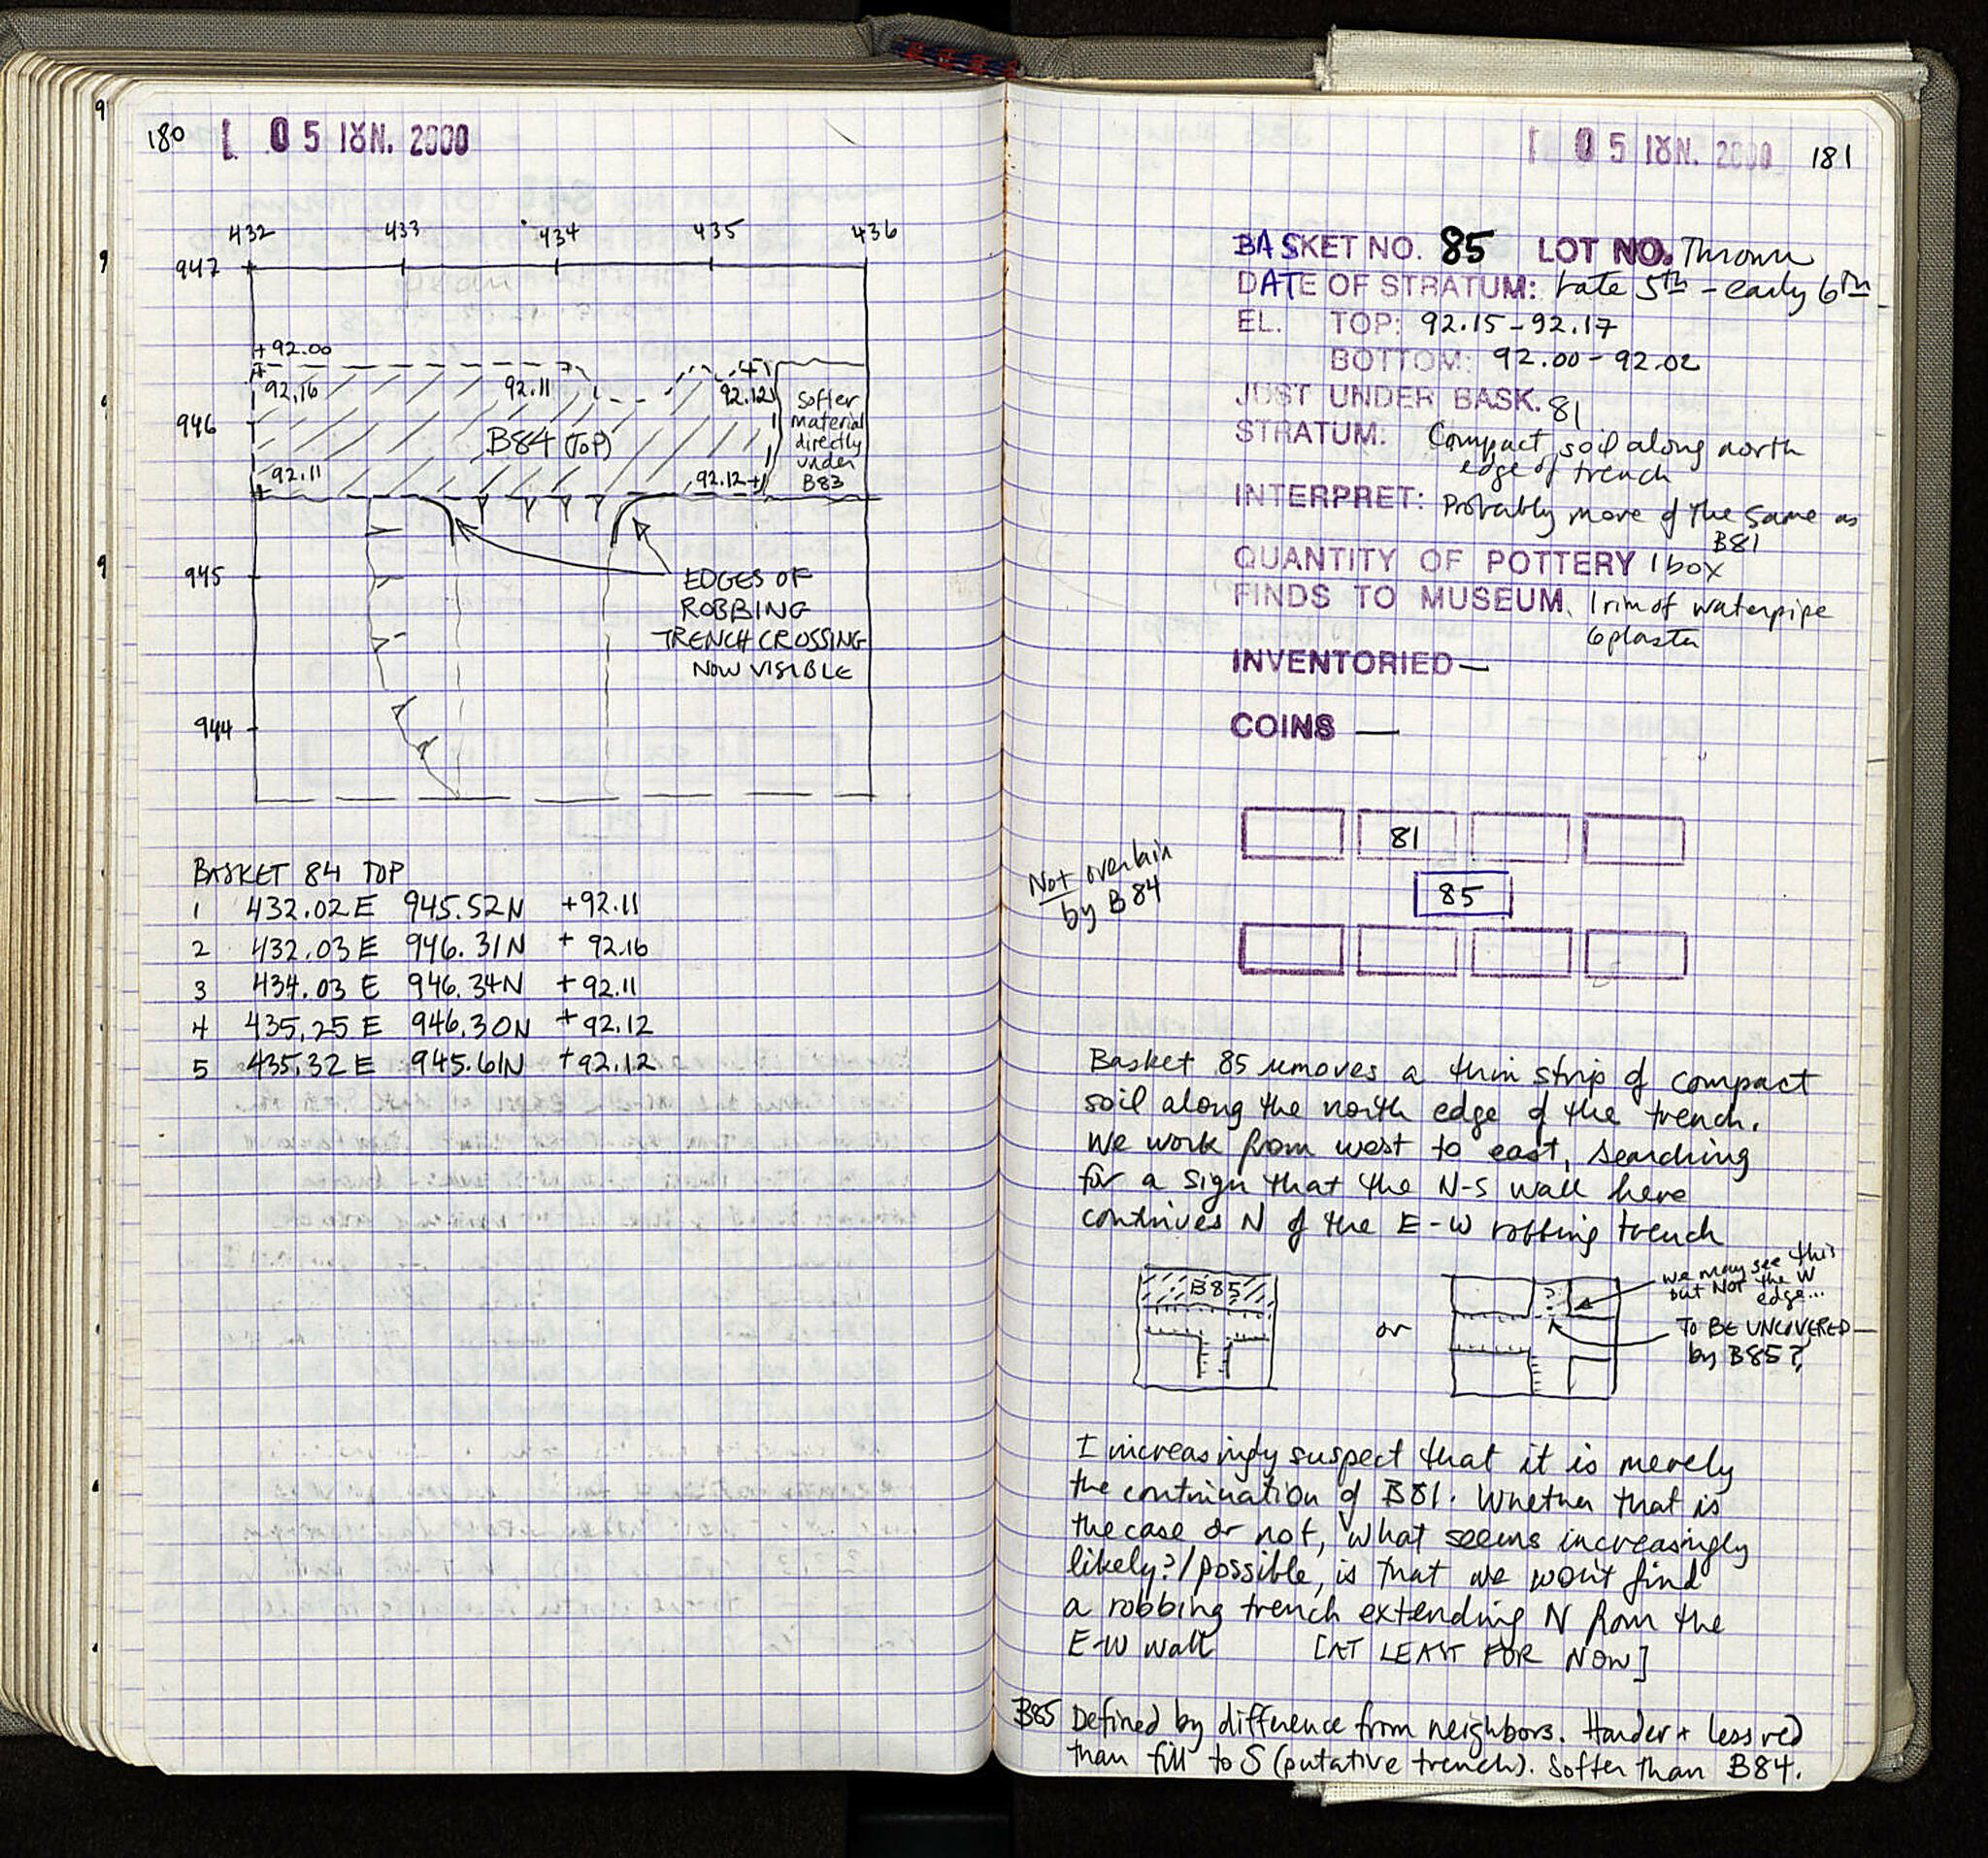 180
[ 05 ΙΟΥΝ. 2000
432 433 434 435 436
947
+92.00
92.16 92.11 92.12
946
B84 (TOP)
softer
material
directly
under
B83
92.11 92.12
945
EDGES OF
ROBBING
TRENCH CROSSING
NOW VISIBLE
944
BASKET 84 TOP
1 432.02 E 945.52N +92.11
2 432.03 E 946.31N + 92.16
3 434.03 E 946.34N +92.11
4 435.25 E 946.30N +92.12
5 435.32 E 945.61N +92.12
[ 05 ΙΟΥΝ. 2000 181
BASKET NO. 85 LOT NO. Thrown
DATE OF STRATUM: Late 5th - early 6th
EL. TOP: 92.15-92.17
BOTTOM: 92.00-92.02
JUST UNDER BASK. 81
STRATUM: Compact soil along north
edge of trench
INTERPRET: Probably more of the same as
B81
QUANTITY OF POTTERY 1 box
FINDS TO MUSEUM. 1 rim of waterpipe
6 plaster
INVENTORIED —
COINS —
81
85
Not overlain
by B84
Basket 85 removes a thin strip of compact
soil along the north edge of the trench.
We work from west to east, searching
for a sign that the N-S wall here
continues N of the E-W robbing trench
B85
or
?
we may see this
but NOT the W
edge...
TO BE UNCOVERED
by B85?
I increasingly suspect that it is merely
the continuation of B81. Whether that is
the case or not, what seems increasingly
likely?/possible, is that we won't find
a robbing trench extending N from the
E-W wall [AT LEAST FOR NOW]
B85 Defined by difference from neighbors. Harder + less red
than fill to S (putative trench). Softer than B84.